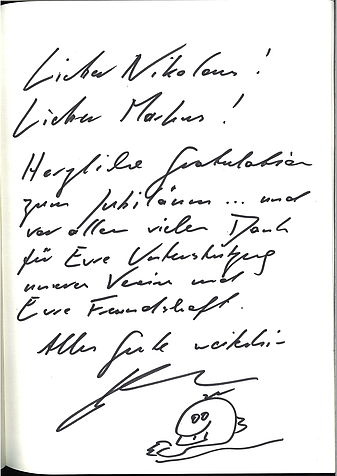 Lieber Nikolaus!
Lieber Markus!
Herzliche Gratulation
zum Jubiläum ... und
vor allem vielen Dank
für Eure Unterstützung
unseres Vereins und
Eure Freundschaft.
Alles Gute weiterhin